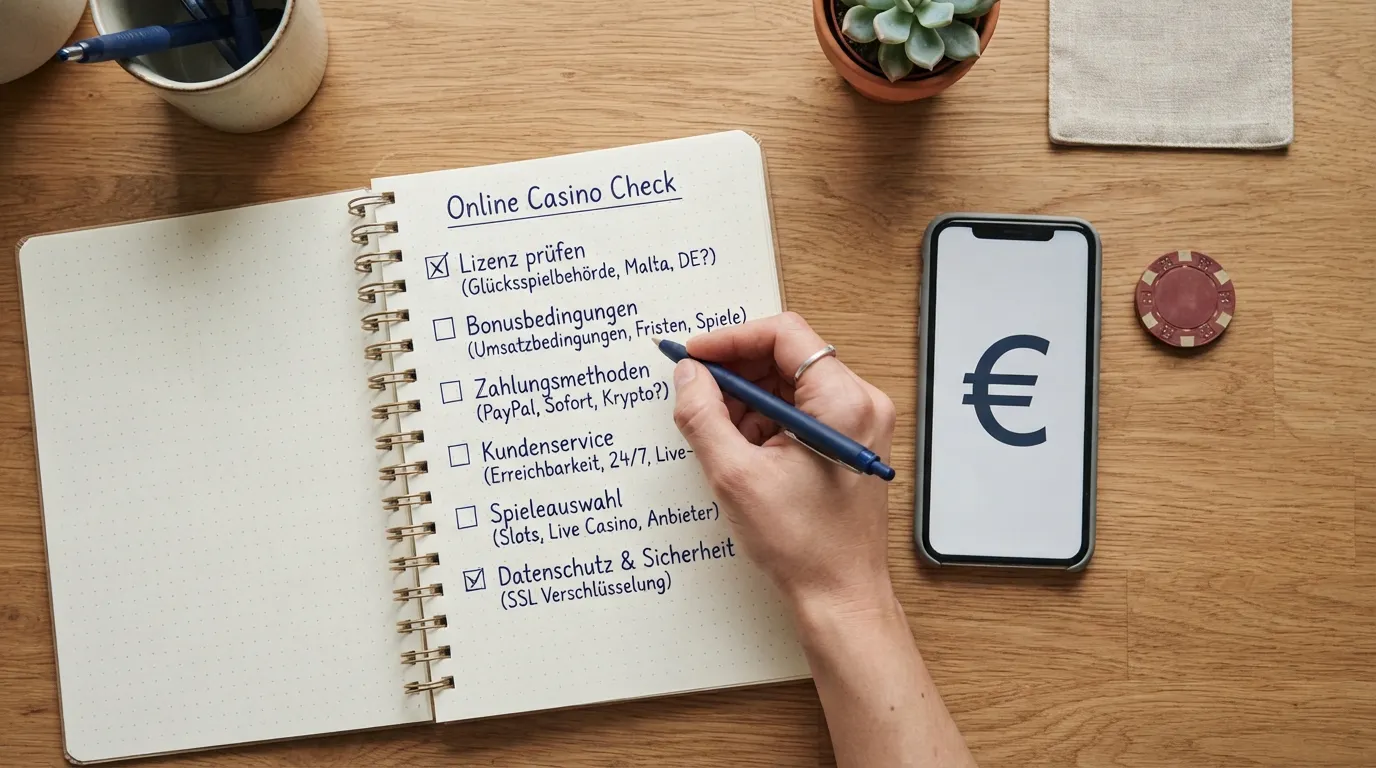 Online Casino Check
Lizenz prüfen
(Glücksspielbehörde, Malta, DE?)
Bonusbedingungen
(Umsatzbedingungen, Fristen, Spiele)
Zahlungsmethoden
(PayPal, Sofort, Krypto?)
Kundenservice
(Erreichbarkeit, 24/7, Live-
Spieleauswahl
(Slots, Live Casino, Anbieter)
Datenschutz & Sicherheit
(SSL Verschlüsselung)
€